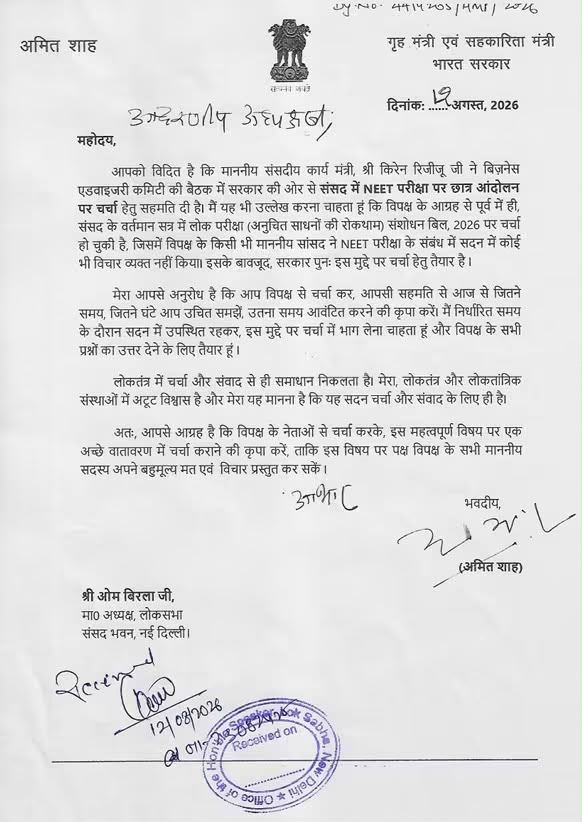 Dy. No. 4414203/HMP/2026
अमित शाह
गृह मंत्री एवं सहकारिता मंत्री
भारत सरकार
सत्यमेव जयते
दिनांक: ......12अगस्त, 2026
आदरणीय अध्यक्ष जी,
महोदय,
आपको विदित है कि माननीय संसदीय कार्य मंत्री, श्री किरेन रिजीजू जी ने बिज़नेस
एडवाइजरी कमिटी की बैठक में सरकार की ओर से संसद में NEET परीक्षा पर छात्र आंदोलन
पर चर्चा हेतु सहमति दी है। मैं यह भी उल्लेख करना चाहता हूं कि विपक्ष के आग्रह से पूर्व में ही,
संसद के वर्तमान सत्र में लोक परीक्षा (अनुचित साधनों की रोकथाम) संशोधन बिल, 2026 पर चर्चा
हो चुकी है, जिसमें विपक्ष के किसी भी माननीय सांसद ने NEET परीक्षा के संबंध में सदन में कोई
भी विचार व्यक्त नहीं किया। इसके बावजूद, सरकार पुनः इस मुद्दे पर चर्चा हेतु तैयार है ।
मेरा आपसे अनुरोध है कि आप विपक्ष से चर्चा कर, आपसी सहमति से आज से जितने
समय, जितने घंटे आप उचित समझें, उतना समय आवंटित करने की कृपा करें। मैं निर्धारित समय
के दौरान सदन में उपस्थित रहकर, इस मुद्दे पर चर्चा में भाग लेना चाहता हूं और विपक्ष के सभी
प्रश्नों का उत्तर देने के लिए तैयार हूं ।
लोकतंत्र में चर्चा और संवाद से ही समाधान निकलता है। मेरा, लोकतंत्र और लोकतांत्रिक
संस्थाओं में अटूट विश्वास है और मेरा यह मानना है कि यह सदन चर्चा और संवाद के लिए ही है।
अतः, आपसे आग्रह है कि विपक्ष के नेताओं से चर्चा करके, इस महत्वपूर्ण विषय पर एक
अच्छे वातावरण में चर्चा कराने की कृपा करें, ताकि इस विषय पर पक्ष विपक्ष के सभी माननीय
सदस्य अपने बहुमूल्य मत एवं विचार प्रस्तुत कर सकें ।
आभार
भवदीय,
(अमित शाह)
श्री ओम बिरला जी,
मा0 अध्यक्ष, लोकसभा
संसद भवन, नई दिल्ली।
Received
12/08/2026
Office of the Hon'ble Speaker, Lok Sabha, New Delhi
Received on